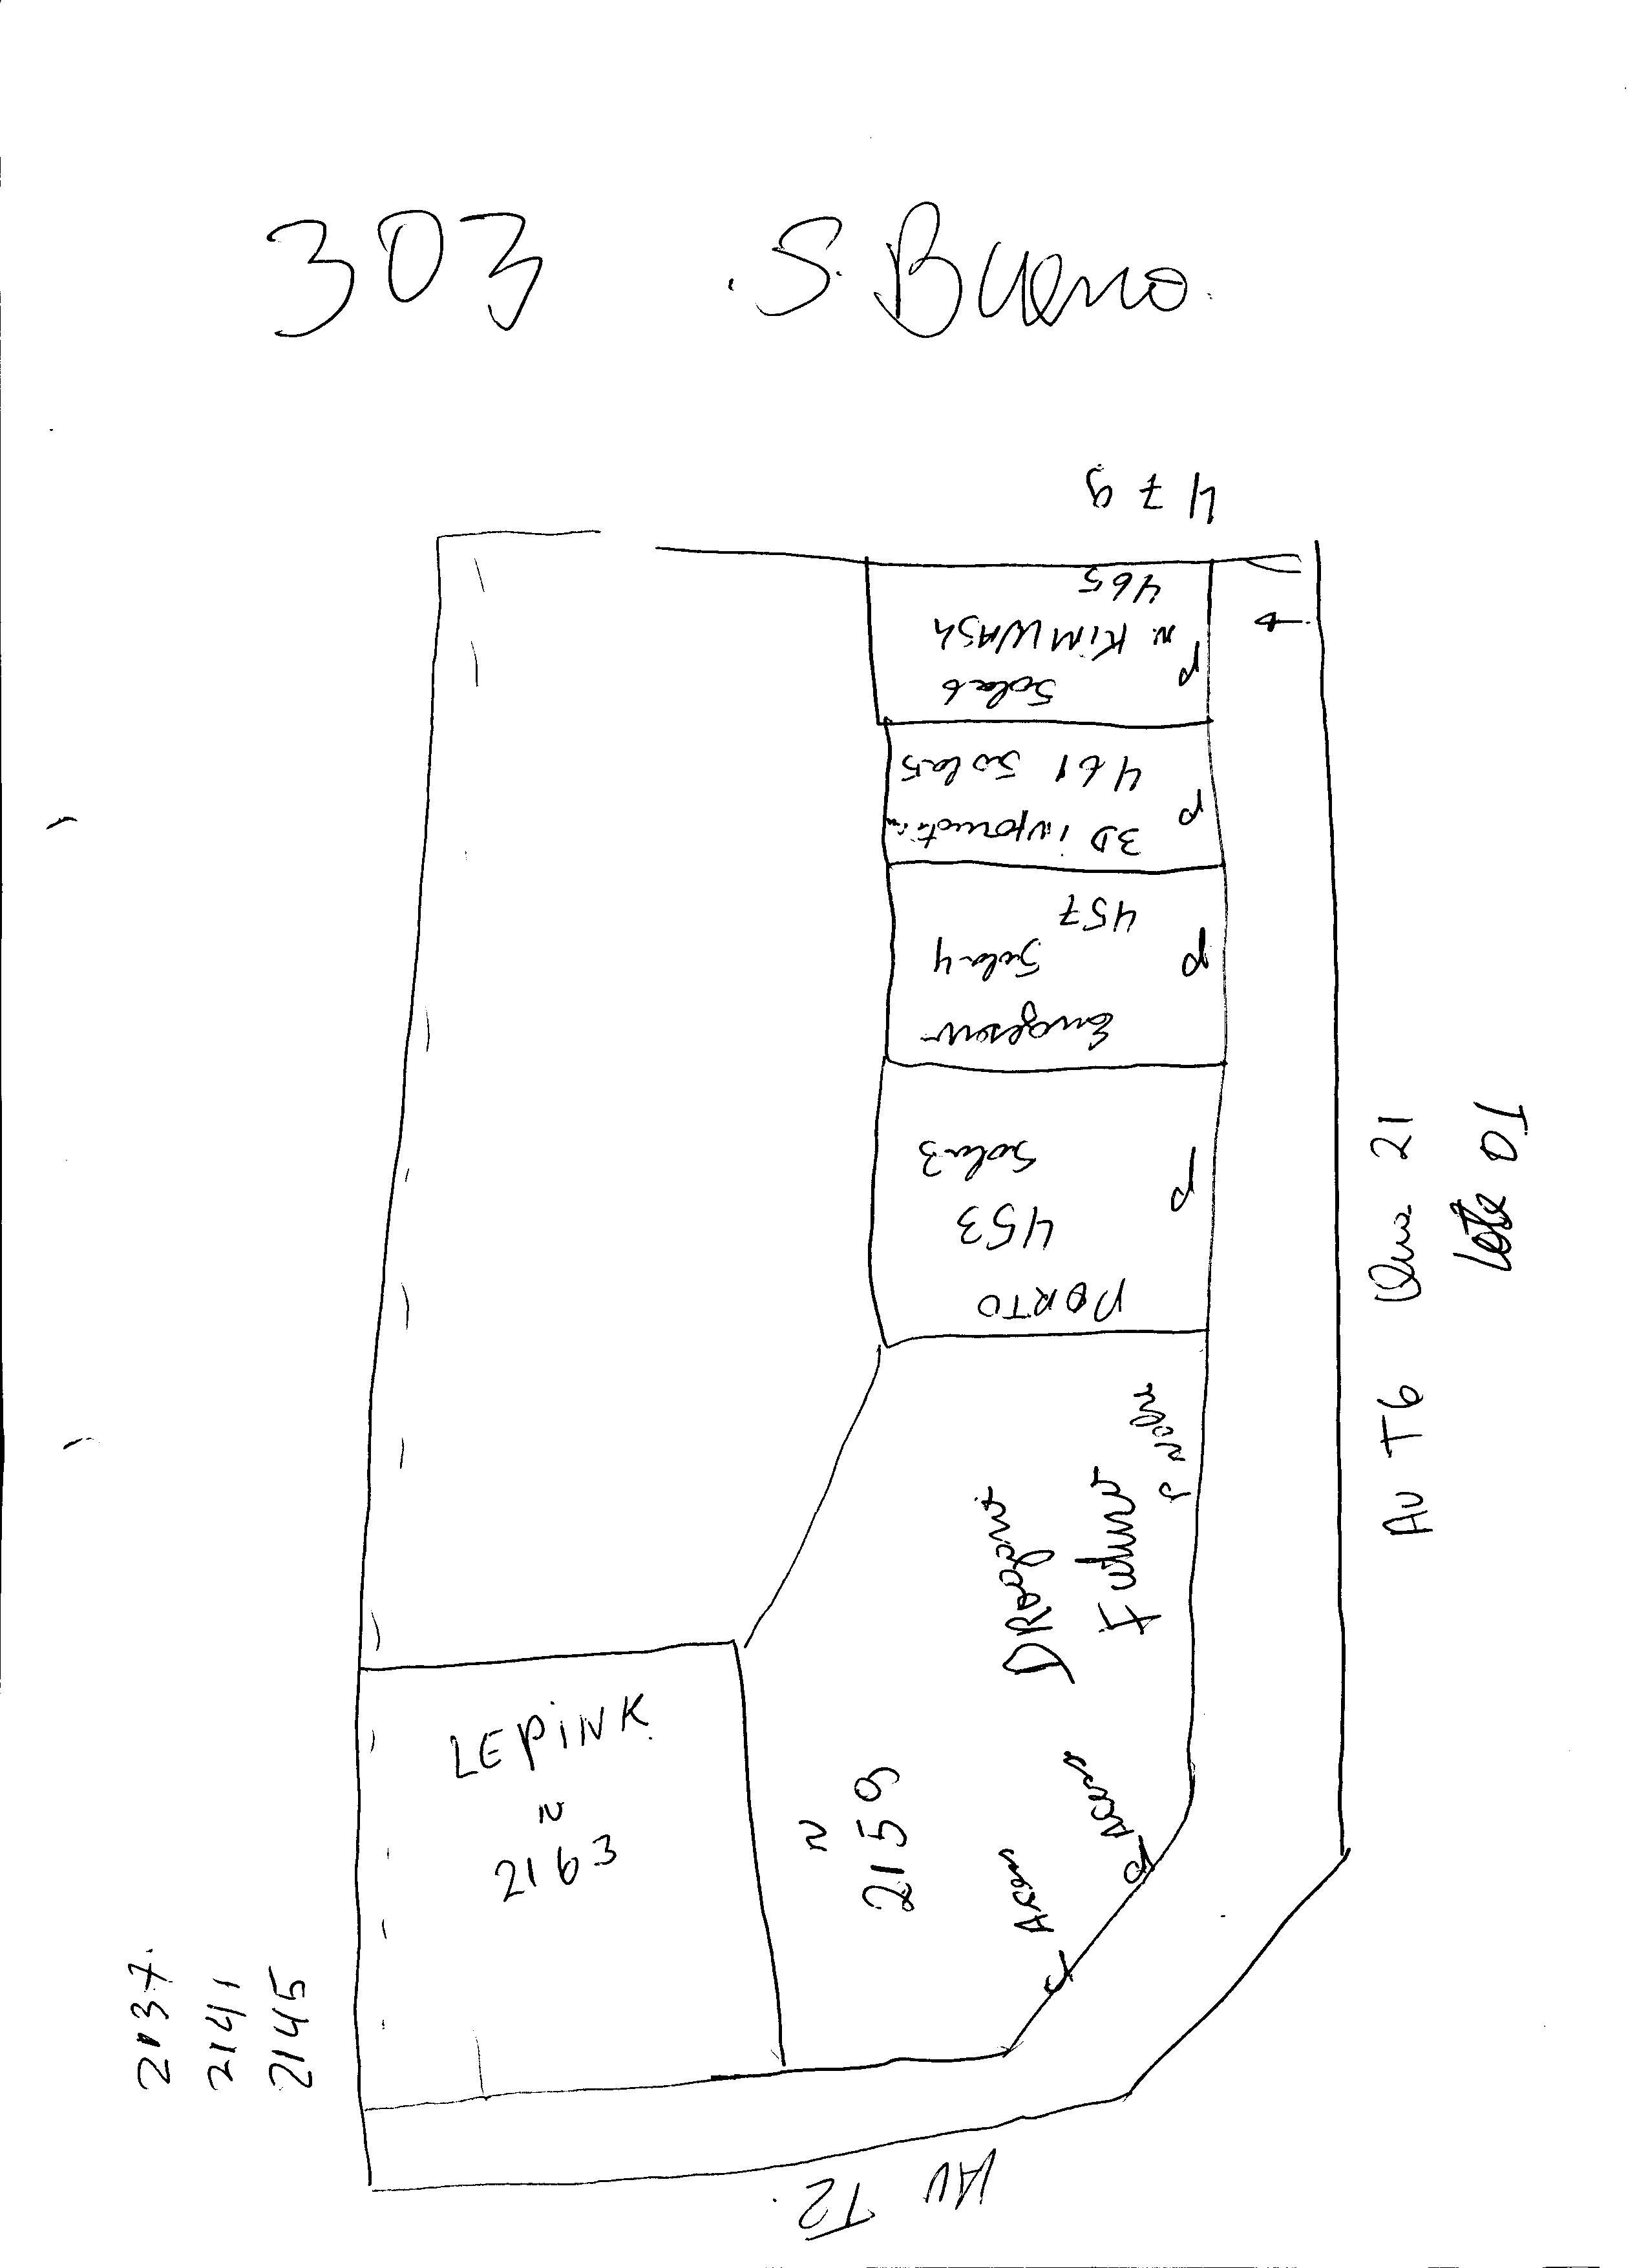 303 S. Bueno
479
465
N. KIMWASH
Sala 6
461 Sala 5
3D informatica
457
Sala 4
Sala 3
453
PORTO
Av T6 Qua 21
Lote 01
DROgaria
Futuro
P
LEPINK
N
2163
N
2159
Acesso
P Acesso
2137
2141
2145
AV
T2